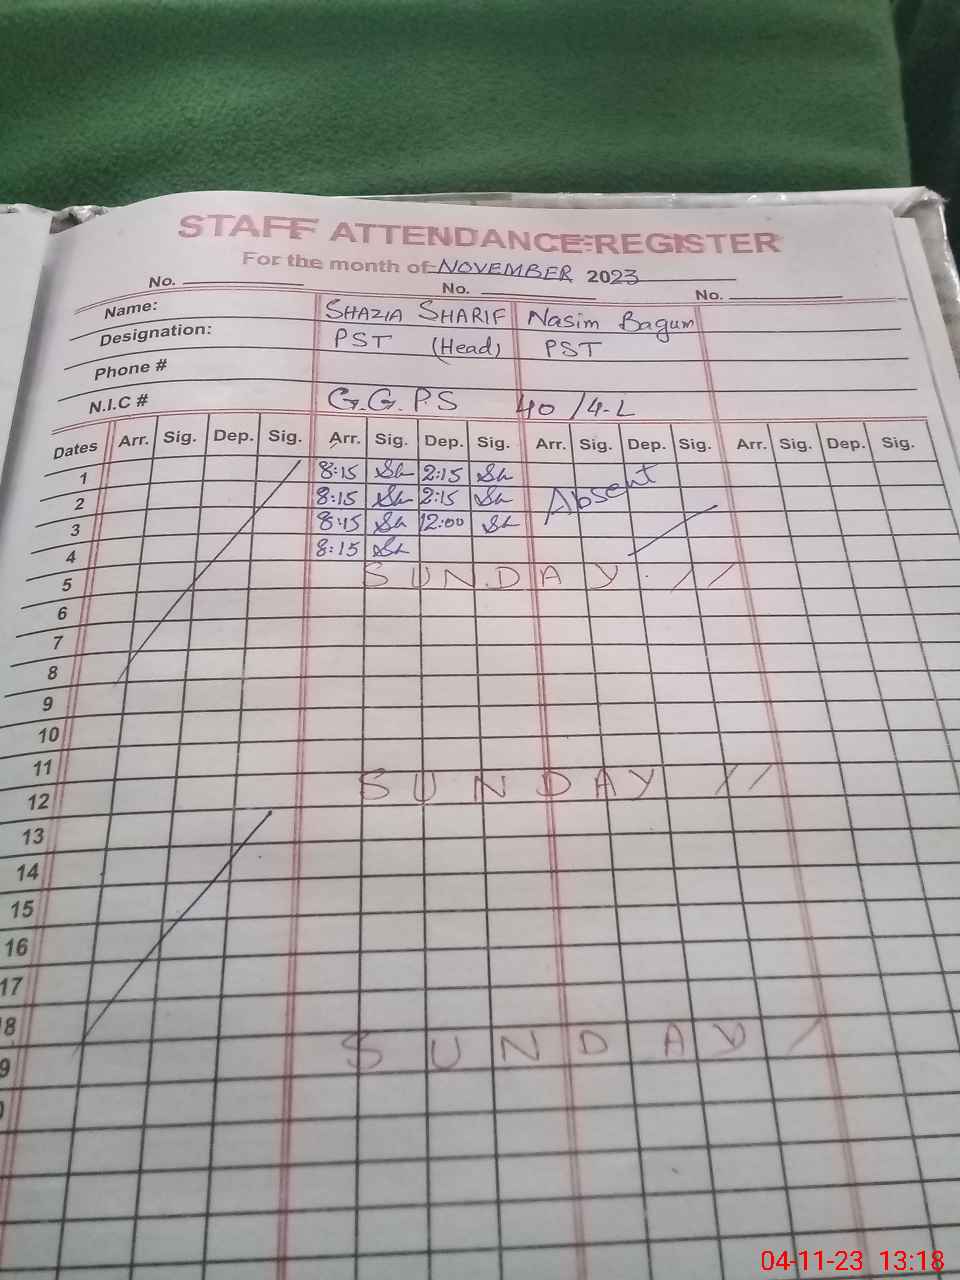 STAFF ATTENDANCE REGISTER
For the month of NOVEMBER 2023
No. No. No.
Name: SHAZIA SHARIF Nasim Bagum
Designation: PST (Head) PST
Phone #
N.I.C # G.G.P.S 40/4-L
Dates Arr. Sig. Dep. Sig. Arr. Sig. Dep. Sig. Arr. Sig. Dep. Sig. Arr. Sig. Dep. Sig.
1 8:15 Sh 2:15 Sh Absent
2 8:15 Sh 2:15 Sh
3 8:15 Sh 12:00 Sh
4 8:15 Sh
5 SUNDAY
6
7
8
9
10
11
12 SUNDAY
13
14
15
16
17
8
9 SUNDAY
04-11-23 13:18